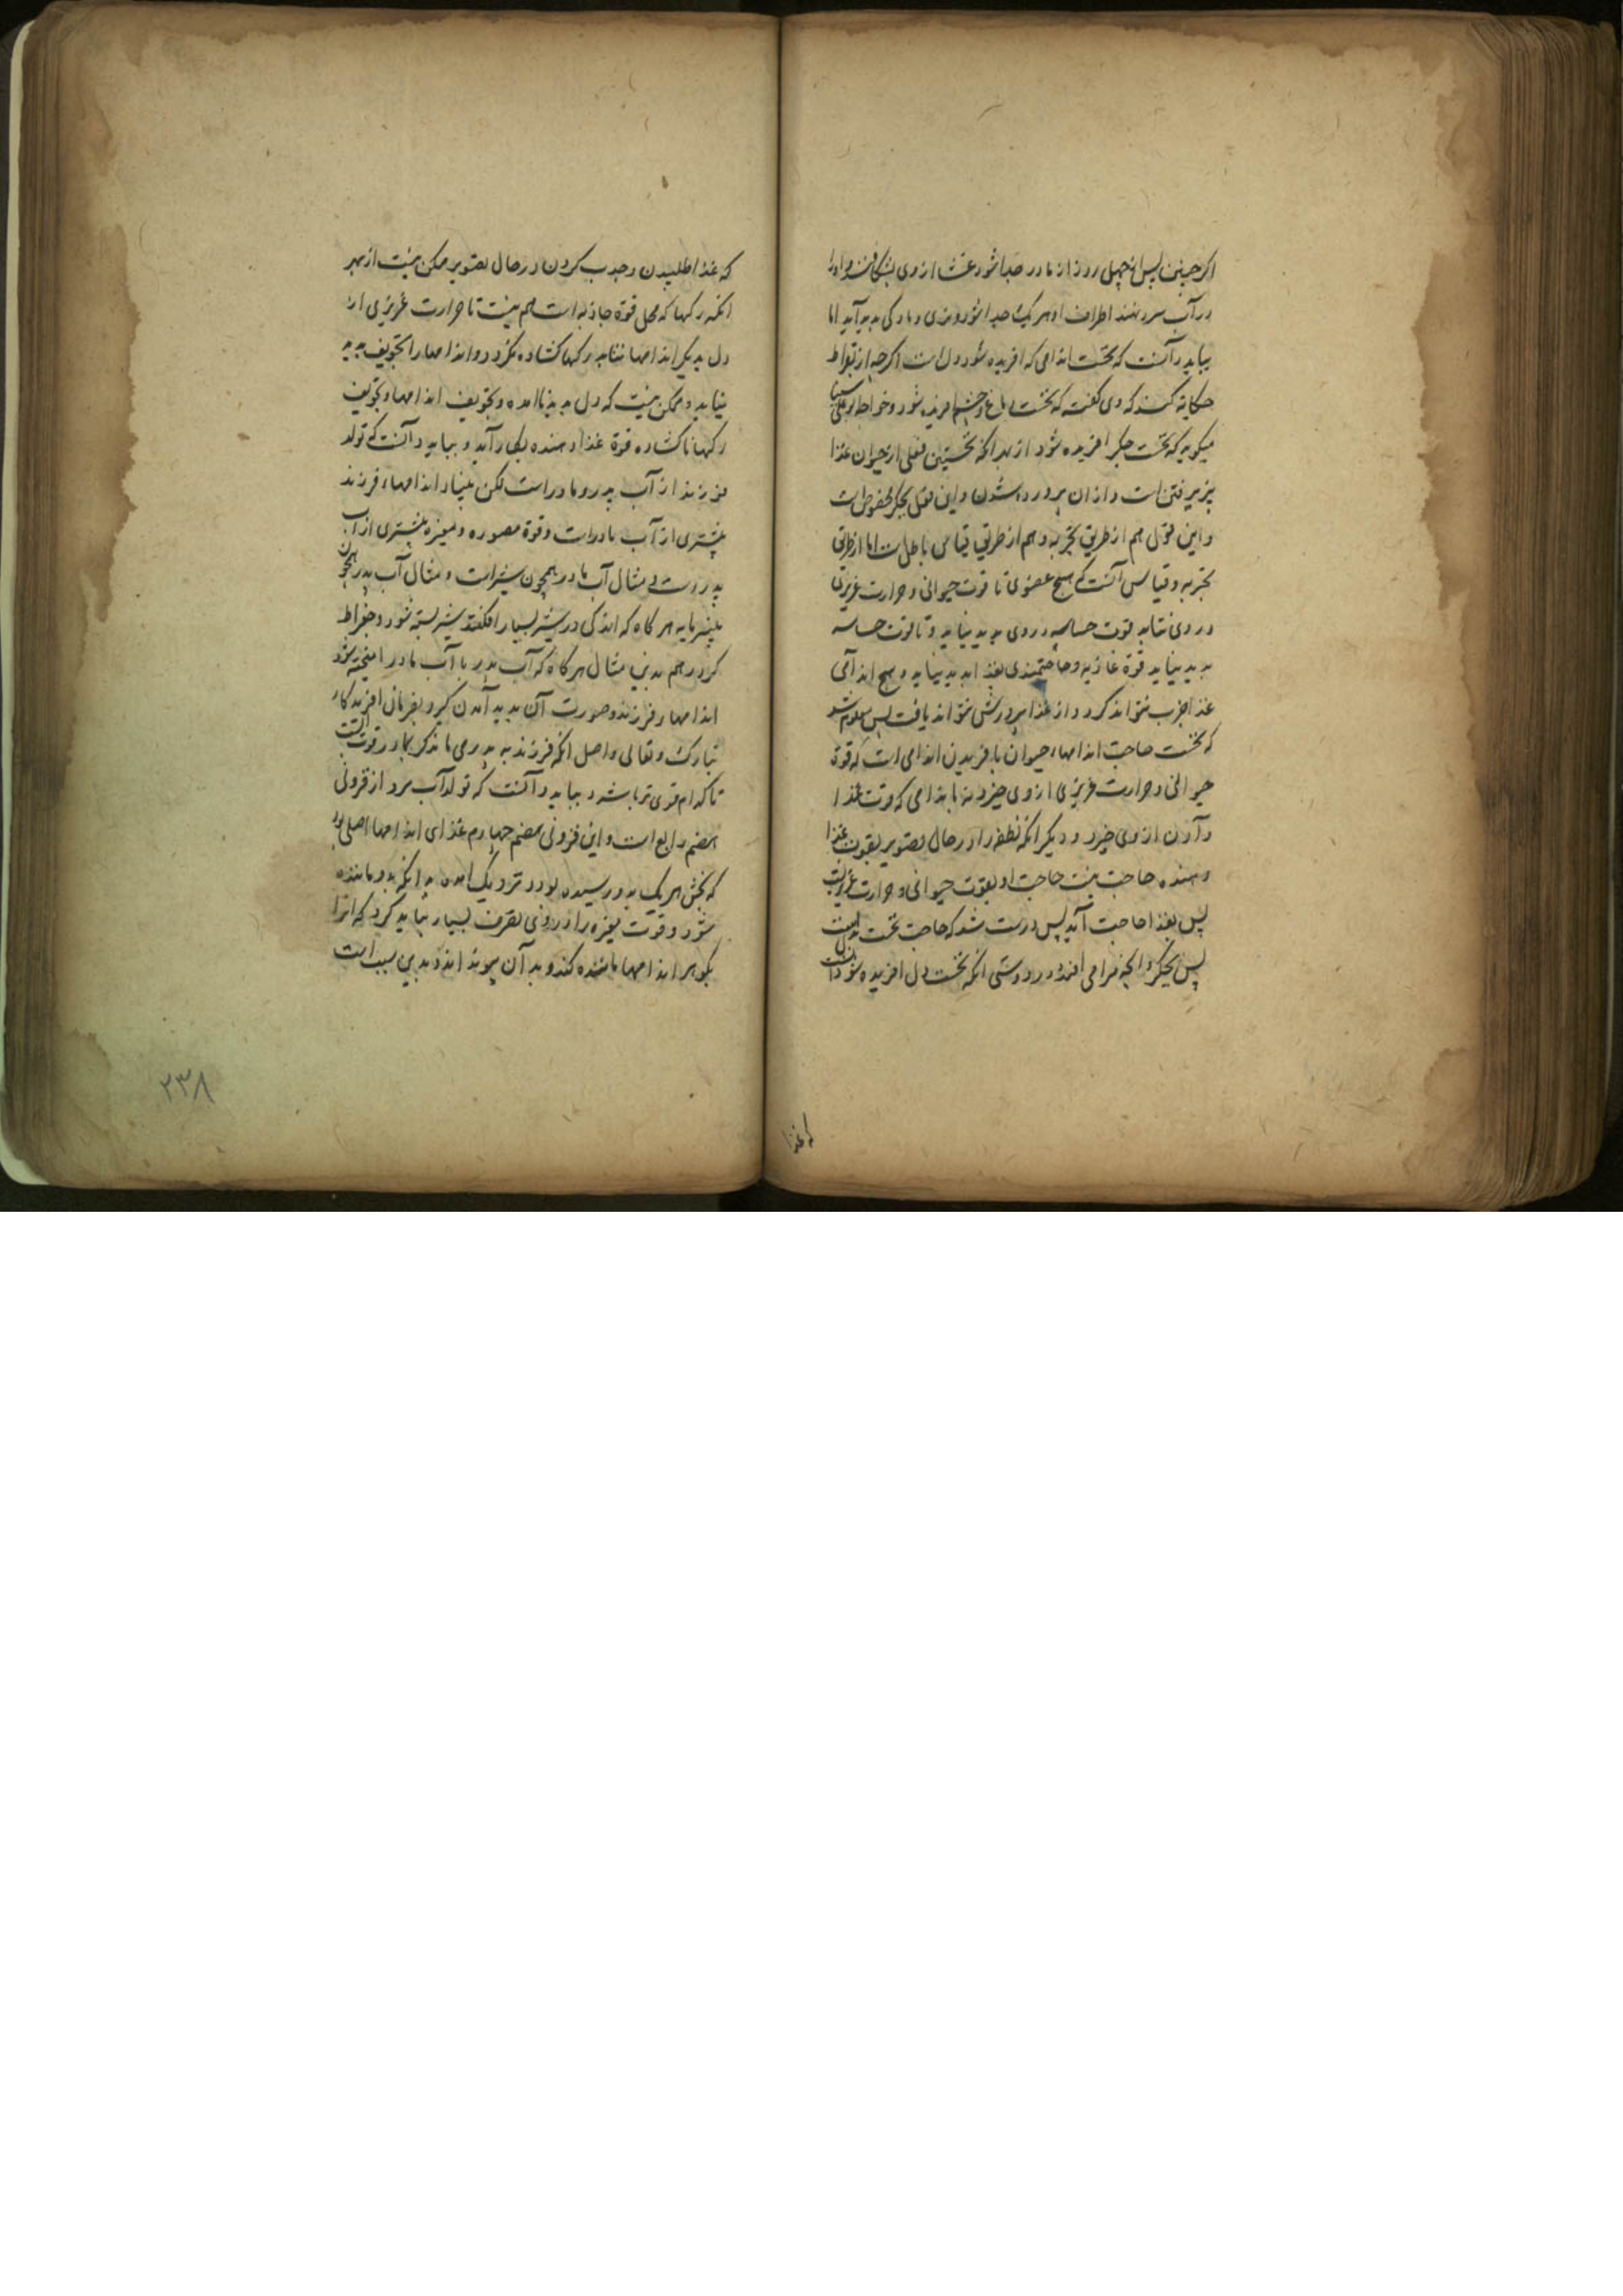 اکر جنین پس از چهل روز از مادر جدا شود غشا از وی بشکافند و او را
در آب سرد نهند اطراف او هر یک جدا شود و نری و مادکی بدید آید اما
بباید دانست که نخست اندامی که افریده شود دل است اکرچه از بقراط
حکایة کنند که وی کفت که نخست دماغ و چشم افریده شود و خواجه ابو علی سینا
میکوید که نخست جکر افریده شود از بهر انکه نخستین فعلی از حیوان غذا
پزیرفتن است و از ان پرورده شدن و این فعل بجکر مخصوص است
و این قول هم از طریق تجربه و هم از طریق قیاس باطل است اما از طریق
تجربه و قیاس آنست که هیچ عضوی تا قوت حیوانی و حرارت غریزی
در وی نتابد قوت حساسه در وی بدید نیاید و تا قوت حساسه
بدید نیاید قوة غاذیه و حاجتمندی بغذا بدید نیاید و هیچ اندامی
غذا جزب نتواند کرد و از غذا پرورش نتواند یافت پس معلوم شد
که نخست حاجت اندامهاء حیوان بافریدن اندامی است که قوة
حیوانی و حرارت غریزی از وی خیزد نه باندامی که قوت غذا
دادن از وی خیزد و دیکر انکه نطفه را در حال تصویر بقوت غذا
دهنده حاجت نیست حاجت او بقوت حیوانی و حرارت غریزیست
پس بغذا حاجت آید پس درست شد که حاجت نخست بدل است
پس بجکر و انچه فرامی افتد در درستی انکه نخست دل افریده شود آنست
که غذا
که غذا طلبیدن و جذب کردن در حال تصویر ممکن نیست از بهر
انکه رکها که محل قوة جاذبه است هم نیست تا حرارت غریزی از
دل بدیکر اندامها نتابد رکها کشاده نکردد و اندامها را تجویف بدید
نیاید و ممکن نیست که دل بدید ناامده و تجویف اندامها و تجویف
رکها ناکشاده قوة غذا دهنده بکار آید و بباید دانست که تولد
فرزند از آب پدر و مادر است لکن بنیاد اندامهاء فرزند
بیشتری از آب مادر است و قوة مصوره و ممیزه بیشتری از آب
پدر است و مثال آب مادر همچون شیر است و مثال آب پدر همچون
پنیرمایه هر کاه که اندکی در شیر بسیار افکنند شیر بسته شود و جغرات
کردد هم بدین مثال هر کاه که آب پدر با آب مادر امیخته شود
اندامها و فرزند و صورت آن بدید آمدن کیرد بفرمان افریدکار
تبارک و تعالی و اصل انکه فرزند به پدر می ماند کر بمادر قوت است
تا کدام قوی تر باشد و بباید دانست که تولد آب مرد از فزونی
هضم رابع است و این فزونی هضم چهارم غذای اندامها اصلی بود
که بخش هر یک بدو رسیده بود و نزدیک امده به انکه بدو ماننده
شود و قوت ممیزه را در وی تصرف بسیار نباید کرد که انرا
بکوهر اندامها ماننده کند و بدان پیوند اندر بدین سبب است
۲۳۸